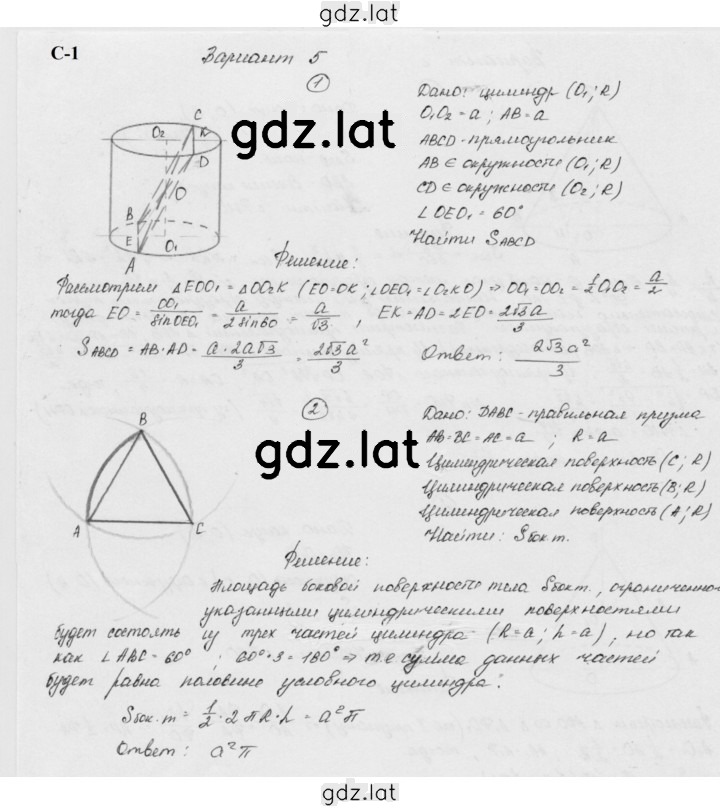 gdz.lat
С-1
Вариант 5
1
Дано: цилиндр (O₁; R)
O₁O₂ = a ; AB = a
ABCD - прямоугольник
AB ∈ окружности (O₁; R)
CD ∈ окружности (O₂; R)
∠OEO₁ = 60°
Найти S_ABCD
C
O₂
K
D
O
B
E
O₁
A
gdz.lat
Решение:
Рассмотрим △EOO₁ = △OO₂K (EO=OK ; ∠OEO₁ = ∠O₂KO) ⇒ OO₁ = OO₂ = 1/2 O₁O₂ = a/2
тогда EO = OO₁/sin OEO₁ = a/2 sin 60 = a/√3 , EK = AD = 2EO = 2√3a/3
S_ABCD = AB · AD = a · 2a√3/3 = 2√3a²/3
Ответ: 2√3a²/3
2
Дано: DABC - правильная призма
AB = BC = AC = a ; R = a
Цилиндрическая поверхность (C ; R)
Цилиндрическая поверхность (B; R)
Цилиндрическая поверхность (A ; R)
Найти: S бок.т.
B
A
C
gdz.lat
Решение:
Площадь боковой поверхности тела S бок.т., ограниченного
указанными цилиндрическими поверхностями
будет состоять из трех частей цилиндра (R = a ; h = a), но так
как ∠ABC = 60° ; 60° · 3 = 180° ⇒ т.е сумма данных частей
будет равна половине условного цилиндра:
S бок.т = 1/2 · 2πR · h = a²π
Ответ: a²π
gdz.lat